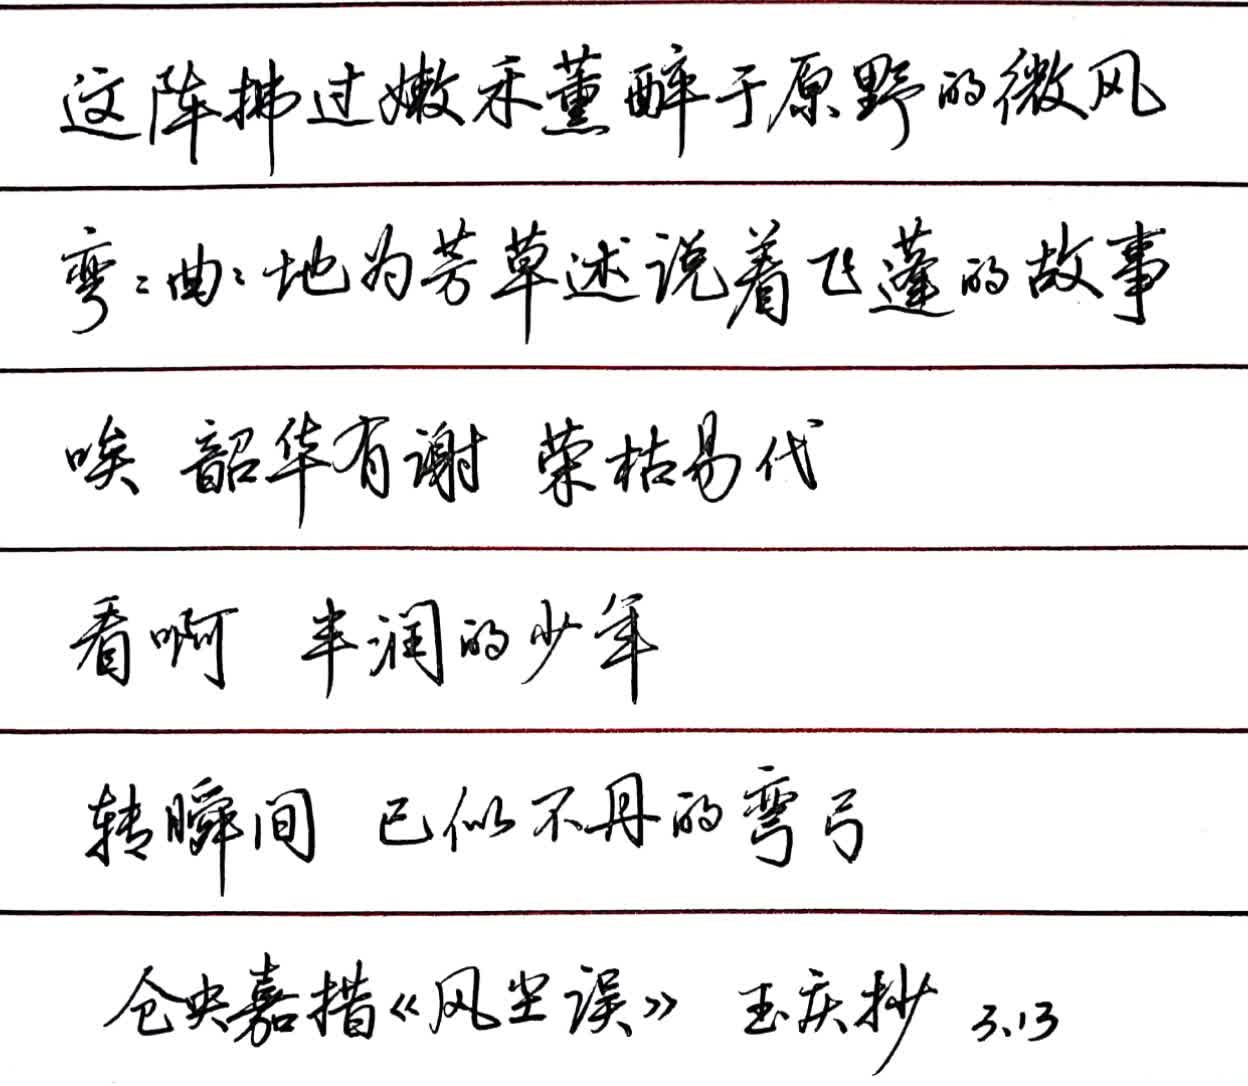 这阵拂过嫩禾薰醉于原野的微风
弯弯曲曲地为芳草述说着飞蓬的故事
唉 韶华有谢 荣枯易代
看啊 丰润的少年
转瞬间 已似不丹的弯弓
仓央嘉措《风尘误》 玉庆抄 3.13